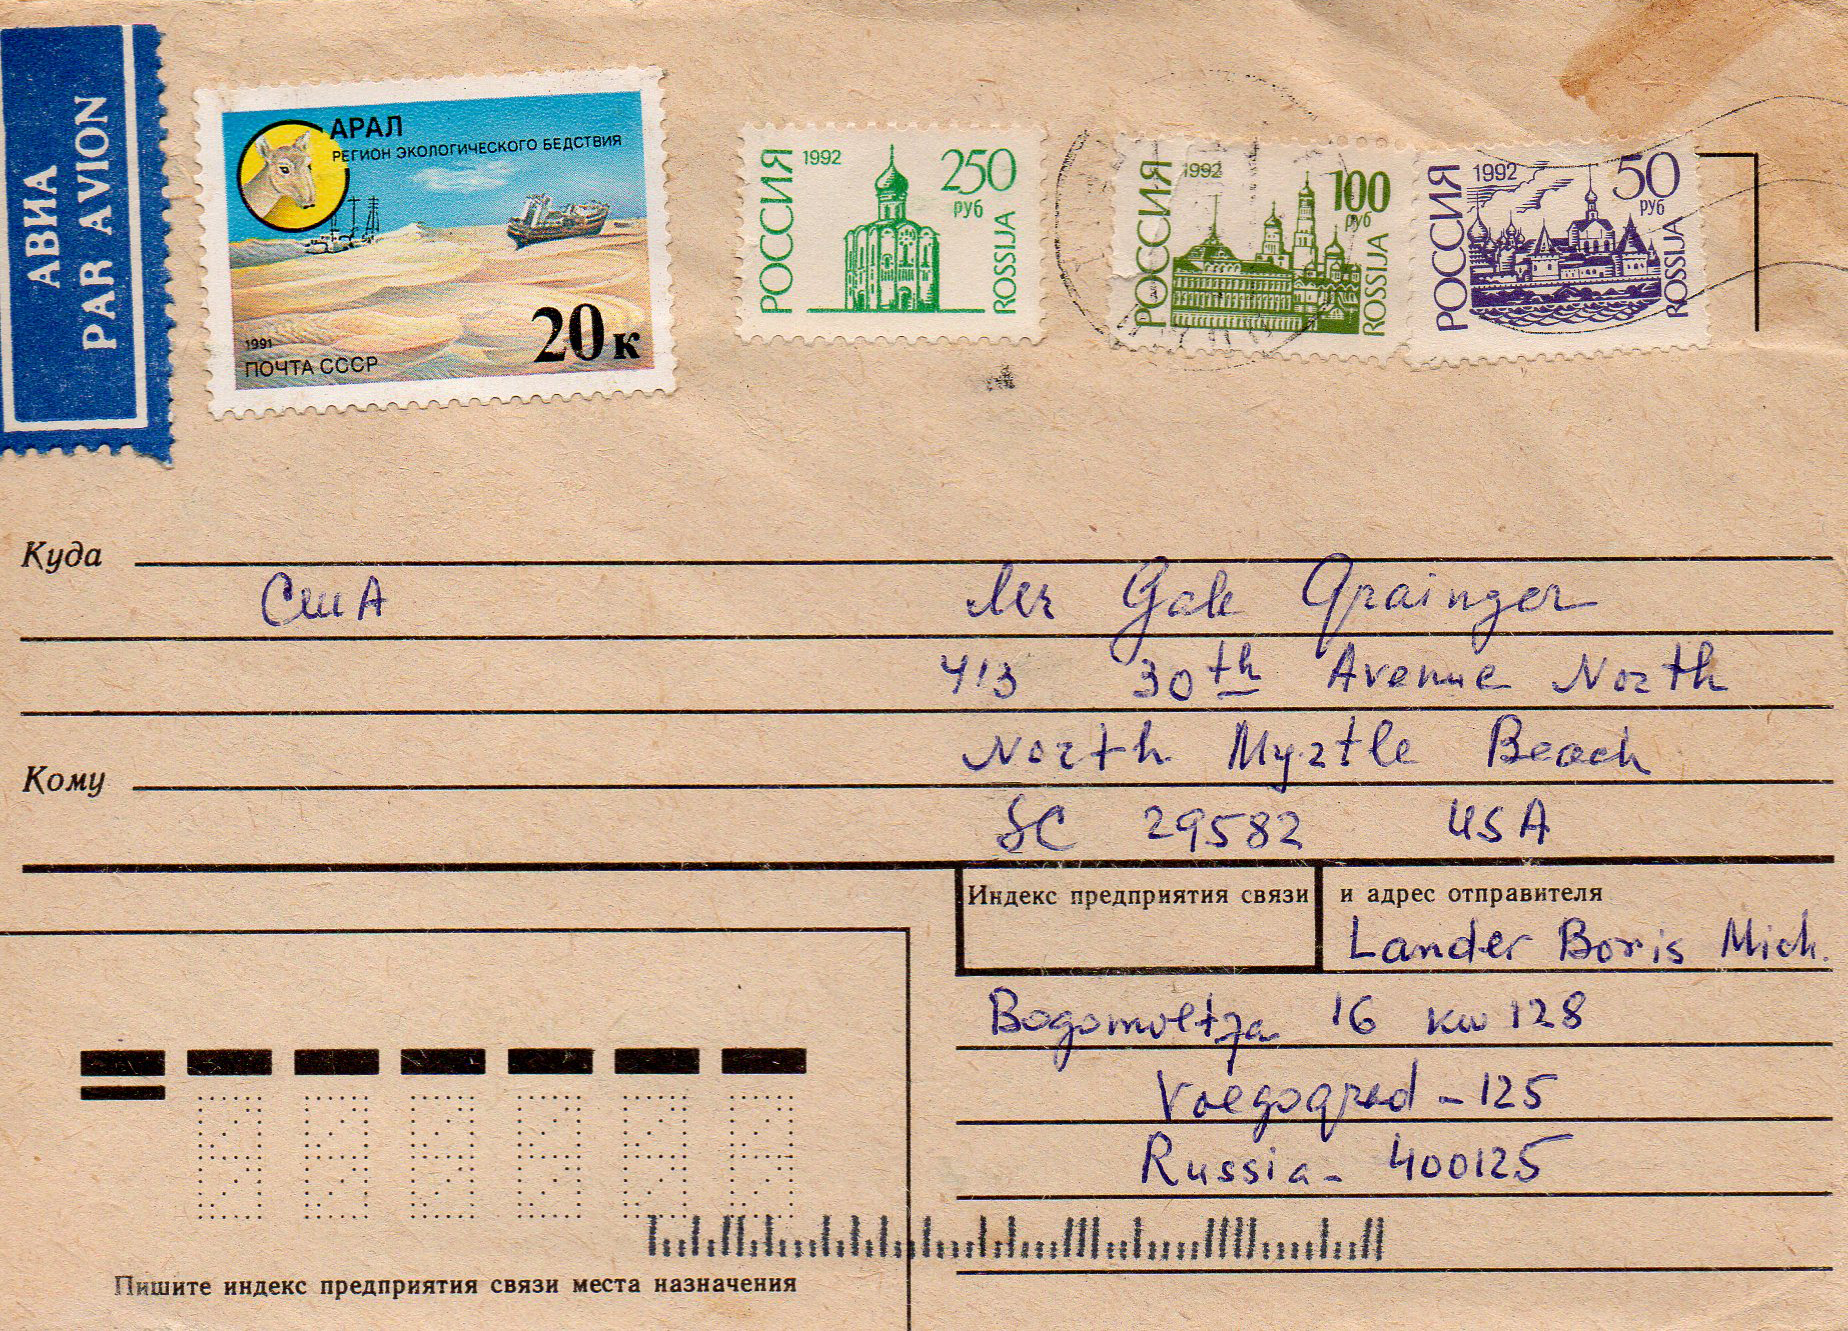 АВИА
PAR AVION
АРАЛ
РЕГИОН ЭКОЛОГИЧЕСКОГО БЕДСТВИЯ
1991
ПОЧТА СССР
20 к
РОССИЯ
1992
250
руб
ROSSIJA
РОССИЯ
1992
100
руб
ROSSIJA
РОССИЯ
1992
50
руб
ROSSIJA
Куда
США
Mr Gale Grainger
413 30th Avenue North
North Myrtle Beach
Кому
SC 29582 USA
Индекс предприятия связи и адрес отправителя
Lander Boris Mich.
Bogomoltza 16 kw 128
Volgograd - 125
Russia - 400125
Пишите индекс предприятия связи места назначения